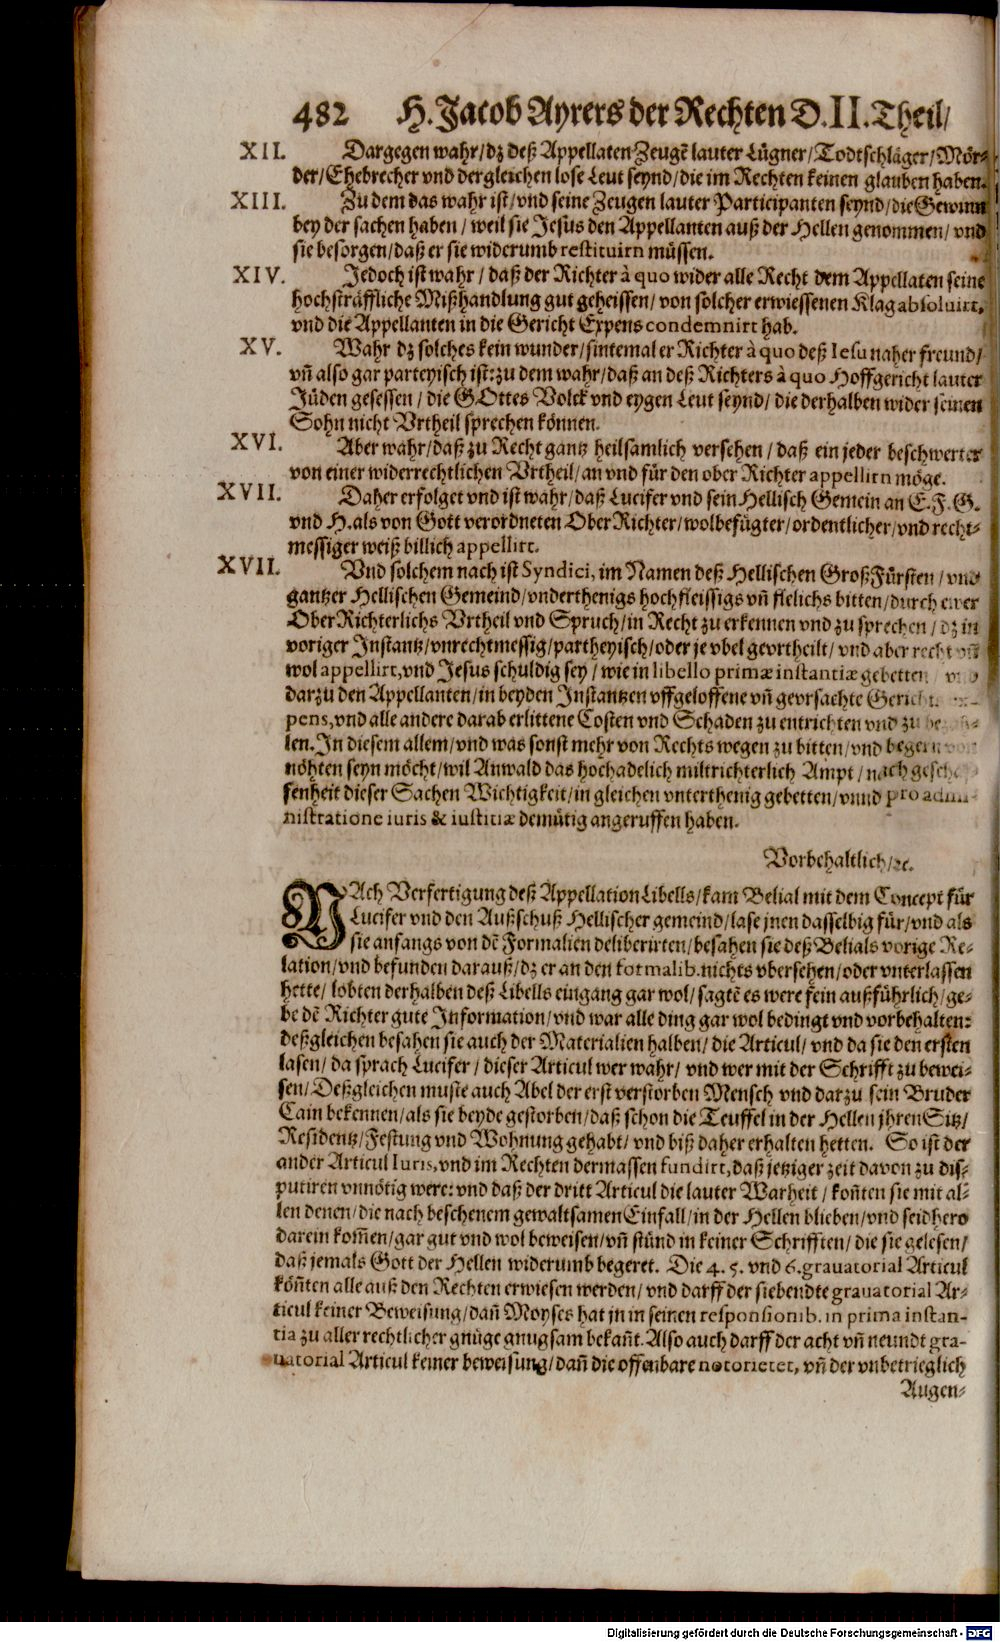 482 H. Jacob Ayrers der Rechten D. II. Theil/
XII. Dargegen wahr/dz deß Appellaten Zeugẽ lauter Lügner/Todtschläger/Mör-
der/Ehebrecher vnd dergleichen lose Leut seynd/die im Rechten keinen glauben haben.
XIII. Zu dem das wahr ist/vnd seine Zeugen lauter Participanten seynd/die Gewinn
bey der sachen haben/weil sie Jesus den Appellanten auß der Hellen genommen/vnd
sie besorgen/daß er sie widerumb restituirn müssen.
XIV. Jedoch ist wahr/daß der Richter à quo wider alle Recht dem Appellaten seine
hochsträffliche Mißhandlung gut geheissen/von solcher erwiessenen Klag absoluirt,
vnd die Appellanten in die Gericht Expens condemnirt hab.
XV. Wahr dz solches kein wunder/sintemal er Richter à quo deß Iesu naher freund/
vñ also gar parteyisch ist: zu dem wahr/daß an deß Richters à quo Hoffgericht lauter
Jüden gesessen/die GOttes Volck vnd eygen Leut seynd/die derhalben wider seinen
Sohn nicht Vrtheil sprechen können.
XVI. Aber wahr/daß zu Recht gantz heilsamlich versehen/daß ein jeder beschwerter
von einer widerrechtlichen Vrtheil/an vnd für den ober Richter appellirn möge.
XVII. Daher erfolget vnd ist wahr/daß Lucifer vnd sein Hellisch Gemein an E. F. G.
vnd H. als von Gott verordneten Ober Richter/wolbefügter/ordentlicher/vnd recht-
messiger weiß billich appellirt.
XVII. Vnd solchem nach ist Syndici, im Namen deß Hellischen GroßFürsten/vnd
gantzer Hellischen Gemeind/vnderthenigs hochfleissigs vñ flelichs bitten/durch ewer
Ober Richterlichs Vrtheil vnd Spruch/in Recht zu erkennen vnd zu sprechen/dz in
voriger Instantz/vnrechtmessig/partheyisch/oder je vbel gevrtheilt/vnd aber recht vñ
wol appellirt, vnd Jesus schuldig sey/wie in libello primæ instantiæ gebetten/
darzu den Appellanten/in beyden Instantzen vffgeloffene vñ gevrsachte
pens, vnd alle andere darab erlittene Costen vnd Schaden zu entrichten vnd zu
len. In diesem allem/vnd was sonst mehr von Rechts wegen zu bitten/vnd
nöhten seyn möcht/wil Anwald das hochadelich miltrichterlich Ampt/nach
senheit dieser Sachen Wichtigkeit/in gleichen vnterthenig gebetten/vnnd pro admi-
nistratione iuris & iustitiæ demütig angeruffen haben.
Vorbehaltlich/ꝛc.
NAch Verfertigung deß Appellation Libells/kam Belial mit dem Concept für
Lucifer vnd den Außschuß Hellischer gemeind/lase jnen dasselbig für/vnd als
sie anfangs von dẽ Formalien deliberirten/besahen sie deß Belials vorige Re-
lation/vnd befunden darauß/dz er an den formalib. nichts vbersehen/oder vnterlassen
hette/lobten derhalben deß Libells eingang gar wol/sagtẽ es were fein außführlich/ge-
be dẽ Richter gute Information/vnd war alle ding gar wol bedingt vnd vorbehalten:
deßgleichen besahen sie auch der Materialien halben/die Articul/vnd da sie den ersten
lasen/da sprach Lucifer/dieser Articul wer wahr/vnd wer mit der Schrifft zu bewei-
sen/Deßgleichen muste auch Abel der erst verstorben Mensch vnd darzu sein Bruder
Cain bekennen/als sie beyde gestorben/daß schon die Teuffel in der Hellen jhren Sitz/
Residentz/Festung vnd Wohnung gehabt/vnd biß daher erhalten hetten. So ist der
ander Articul Iuris, vnd im Rechten dermassen fundirt, daß jetziger zeit davon zu dis-
putiren vnnötig were: vnd daß der dritt Articul die lauter Warheit/koñten sie mit al-
len denen/die nach beschenem gewaltsamen Einfall/in der Hellen blieben/vnd seidhero
darein kom̃en/gar gut vnd wol beweisen/vñ stünd in keiner Schrifften/die sie gelesen/
daß jemals Gott der Hellen widerumb begeret. Die 4. 5. vnd 6. gravatorial Articul
köñten alle auß den Rechten erwiesen werden/vnd darff der siebendte grauatorial Ar-
ticul keiner Beweisung/dañ Moyses hat jn in seinen responsionib. in prima instan-
tia zu aller rechtlicher gnüge gnugsam bekañt. Also auch darff der acht vñ neundt gra-
uatorial Articul keiner beweisung/dañ die offenbare notorietet, vñ der vnbetrieglich
Augen-
Digitalisierung gefördert durch die Deutsche Forschungsgemeinschaft - DFG